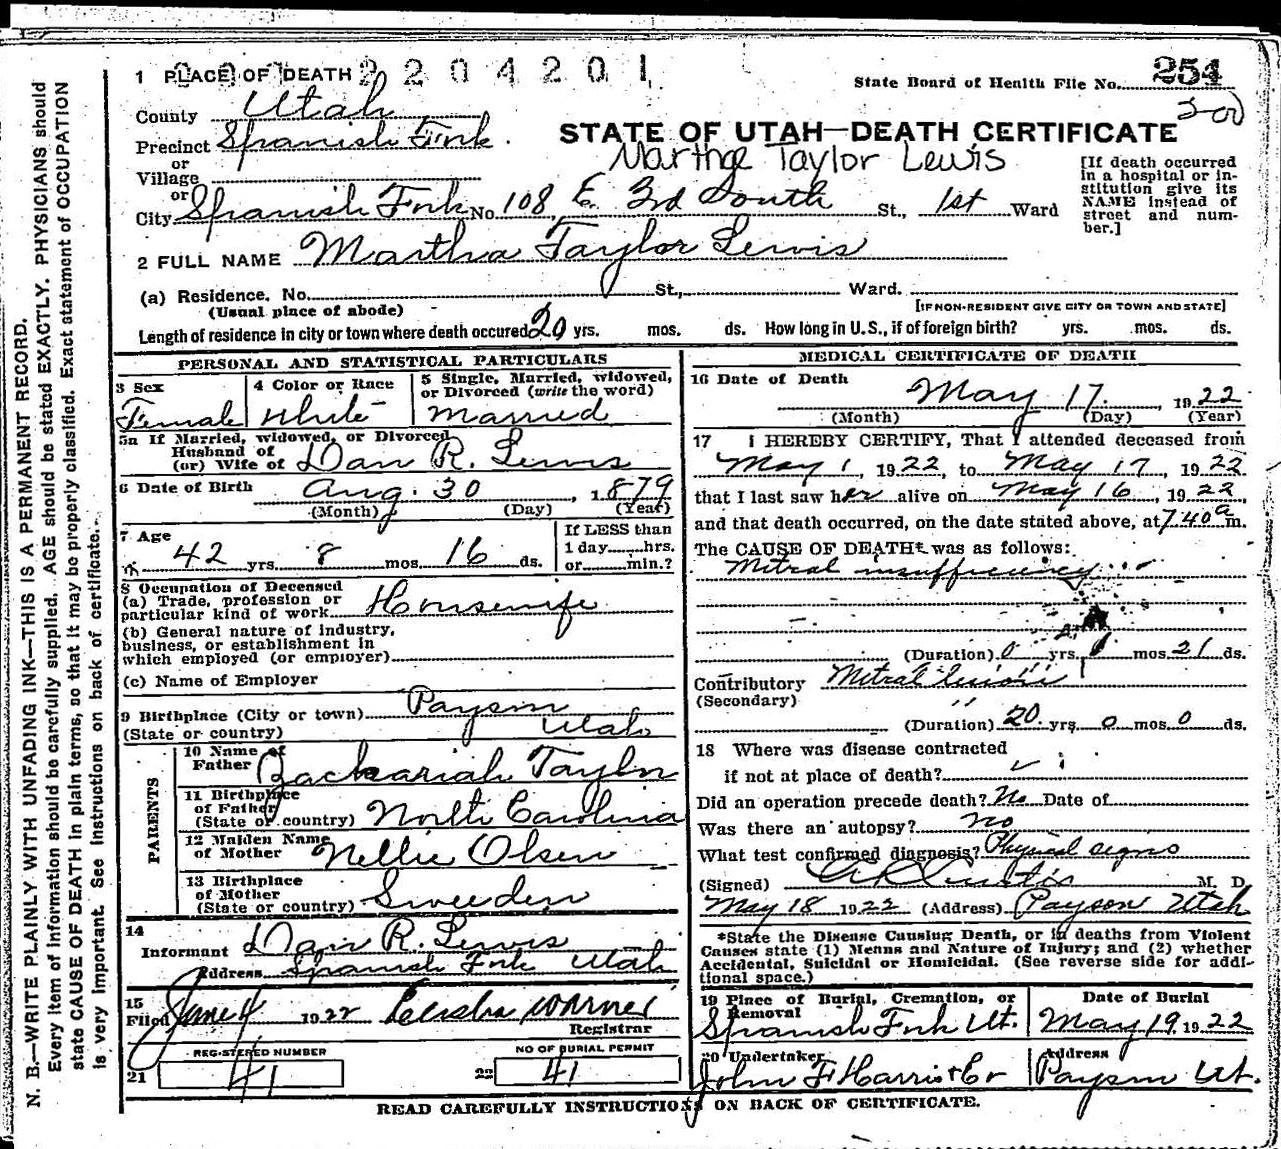 1 PLACE OF DEATH 2204201
State Board of Health File No. 254
County Utah
Precinct Spanish Fork.
STATE OF UTAH—DEATH CERTIFICATE
or
Village
Martha Taylor Lewis
[If death occurred in a hospital or institution give its NAME instead of street and number.]
or
City Spanish Fork No. 108 E. 3rd South St., 1st Ward
2 FULL NAME Martha Taylor Lewis
(a) Residence. No. St., Ward.
(Usual place of abode) [IF NON-RESIDENT GIVE CITY OR TOWN AND STATE]
Length of residence in city or town where death occured 20 yrs. mos. ds. How long in U. S., if of foreign birth? yrs. mos. ds.
PERSONAL AND STATISTICAL PARTICULARS
3 Sex
Female
4 Color or Race
White
5 Single, Married, widowed,
or Divorced (write the word)
Married
5a If Married, widowed, or Divorced
Husband of
(or) Wife of Dan R. Lewis
6 Date of Birth Aug. 30, 1879
(Month) (Day) (Year)
7 Age
42 yrs. 8 mos. 16 ds.
If LESS than
1 day......hrs.
or......min.?
8 Occupation of Deceased
(a) Trade, profession or
particular kind of work Housewife
(b) General nature of industry,
business, or establishment in
which employed (or employer)
(c) Name of Employer
9 Birthplace (City or town) Payson
(State or country) Utah
PARENTS
10 Name of
Father Zachariah Taylor
11 Birthplace
of Father
(State or country) North Carolina
12 Maiden Name
of Mother Nellie Olsen
13 Birthplace
of Mother
(State or country) Sweeden
14
Informant Dan R. Lewis
Address Spanish Fork Utah
15
Filed June 4 1922 Warner
Registrar
REGISTERED NUMBER
21 41
NO OF BURIAL PERMIT
22 41
MEDICAL CERTIFICATE OF DEATH
16 Date of Death
May 17, 1922
(Month) (Day) (Year)
17 I HEREBY CERTIFY, That I attended deceased from
May 1, 1922, to May 17, 1922
that I last saw her alive on May 16, 1922,
and that death occurred, on the date stated above, at 7.40 a m.
The CAUSE OF DEATH* was as follows:
Mitral insufficiency
(Duration) 0 yrs. mos. 21 ds.
Contributory Mitral lesion
(Secondary)
(Duration) 20 yrs. 0 mos. 0 ds.
18 Where was disease contracted
if not at place of death?
Did an operation precede death? No Date of
Was there an autopsy? no
What test confirmed diagnosis? Physical signs
(Signed) Curtis M. D.
May 18 1922 (Address) Payson Utah
*State the Disease Causing Death, or in deaths from Violent
Causes state (1) Menns and Nature of Injury; and (2) whether
Accidental, Suicidal or Homicidal. (See reverse side for addi-
tional space.)
19 Place of Burial, Cremation, or
Removal
Spanish Fork Ut.
Date of Burial
May 19 1922
20 Undertaker
John F Harris & Co
Address
Payson Ut.
READ CAREFULLY INSTRUCTIONS ON BACK OF CERTIFICATE.
N. B.—WRITE PLAINLY WITH UNFADING INK—THIS IS A PERMANENT RECORD.
Every item of information should be carefully supplied. AGE should be stated EXACTLY. PHYSICIANS should
state CAUSE OF DEATH in plain terms, so that it may be properly classified. Exact statement of OCCUPATION
is very important. See instructions on back of certificate.